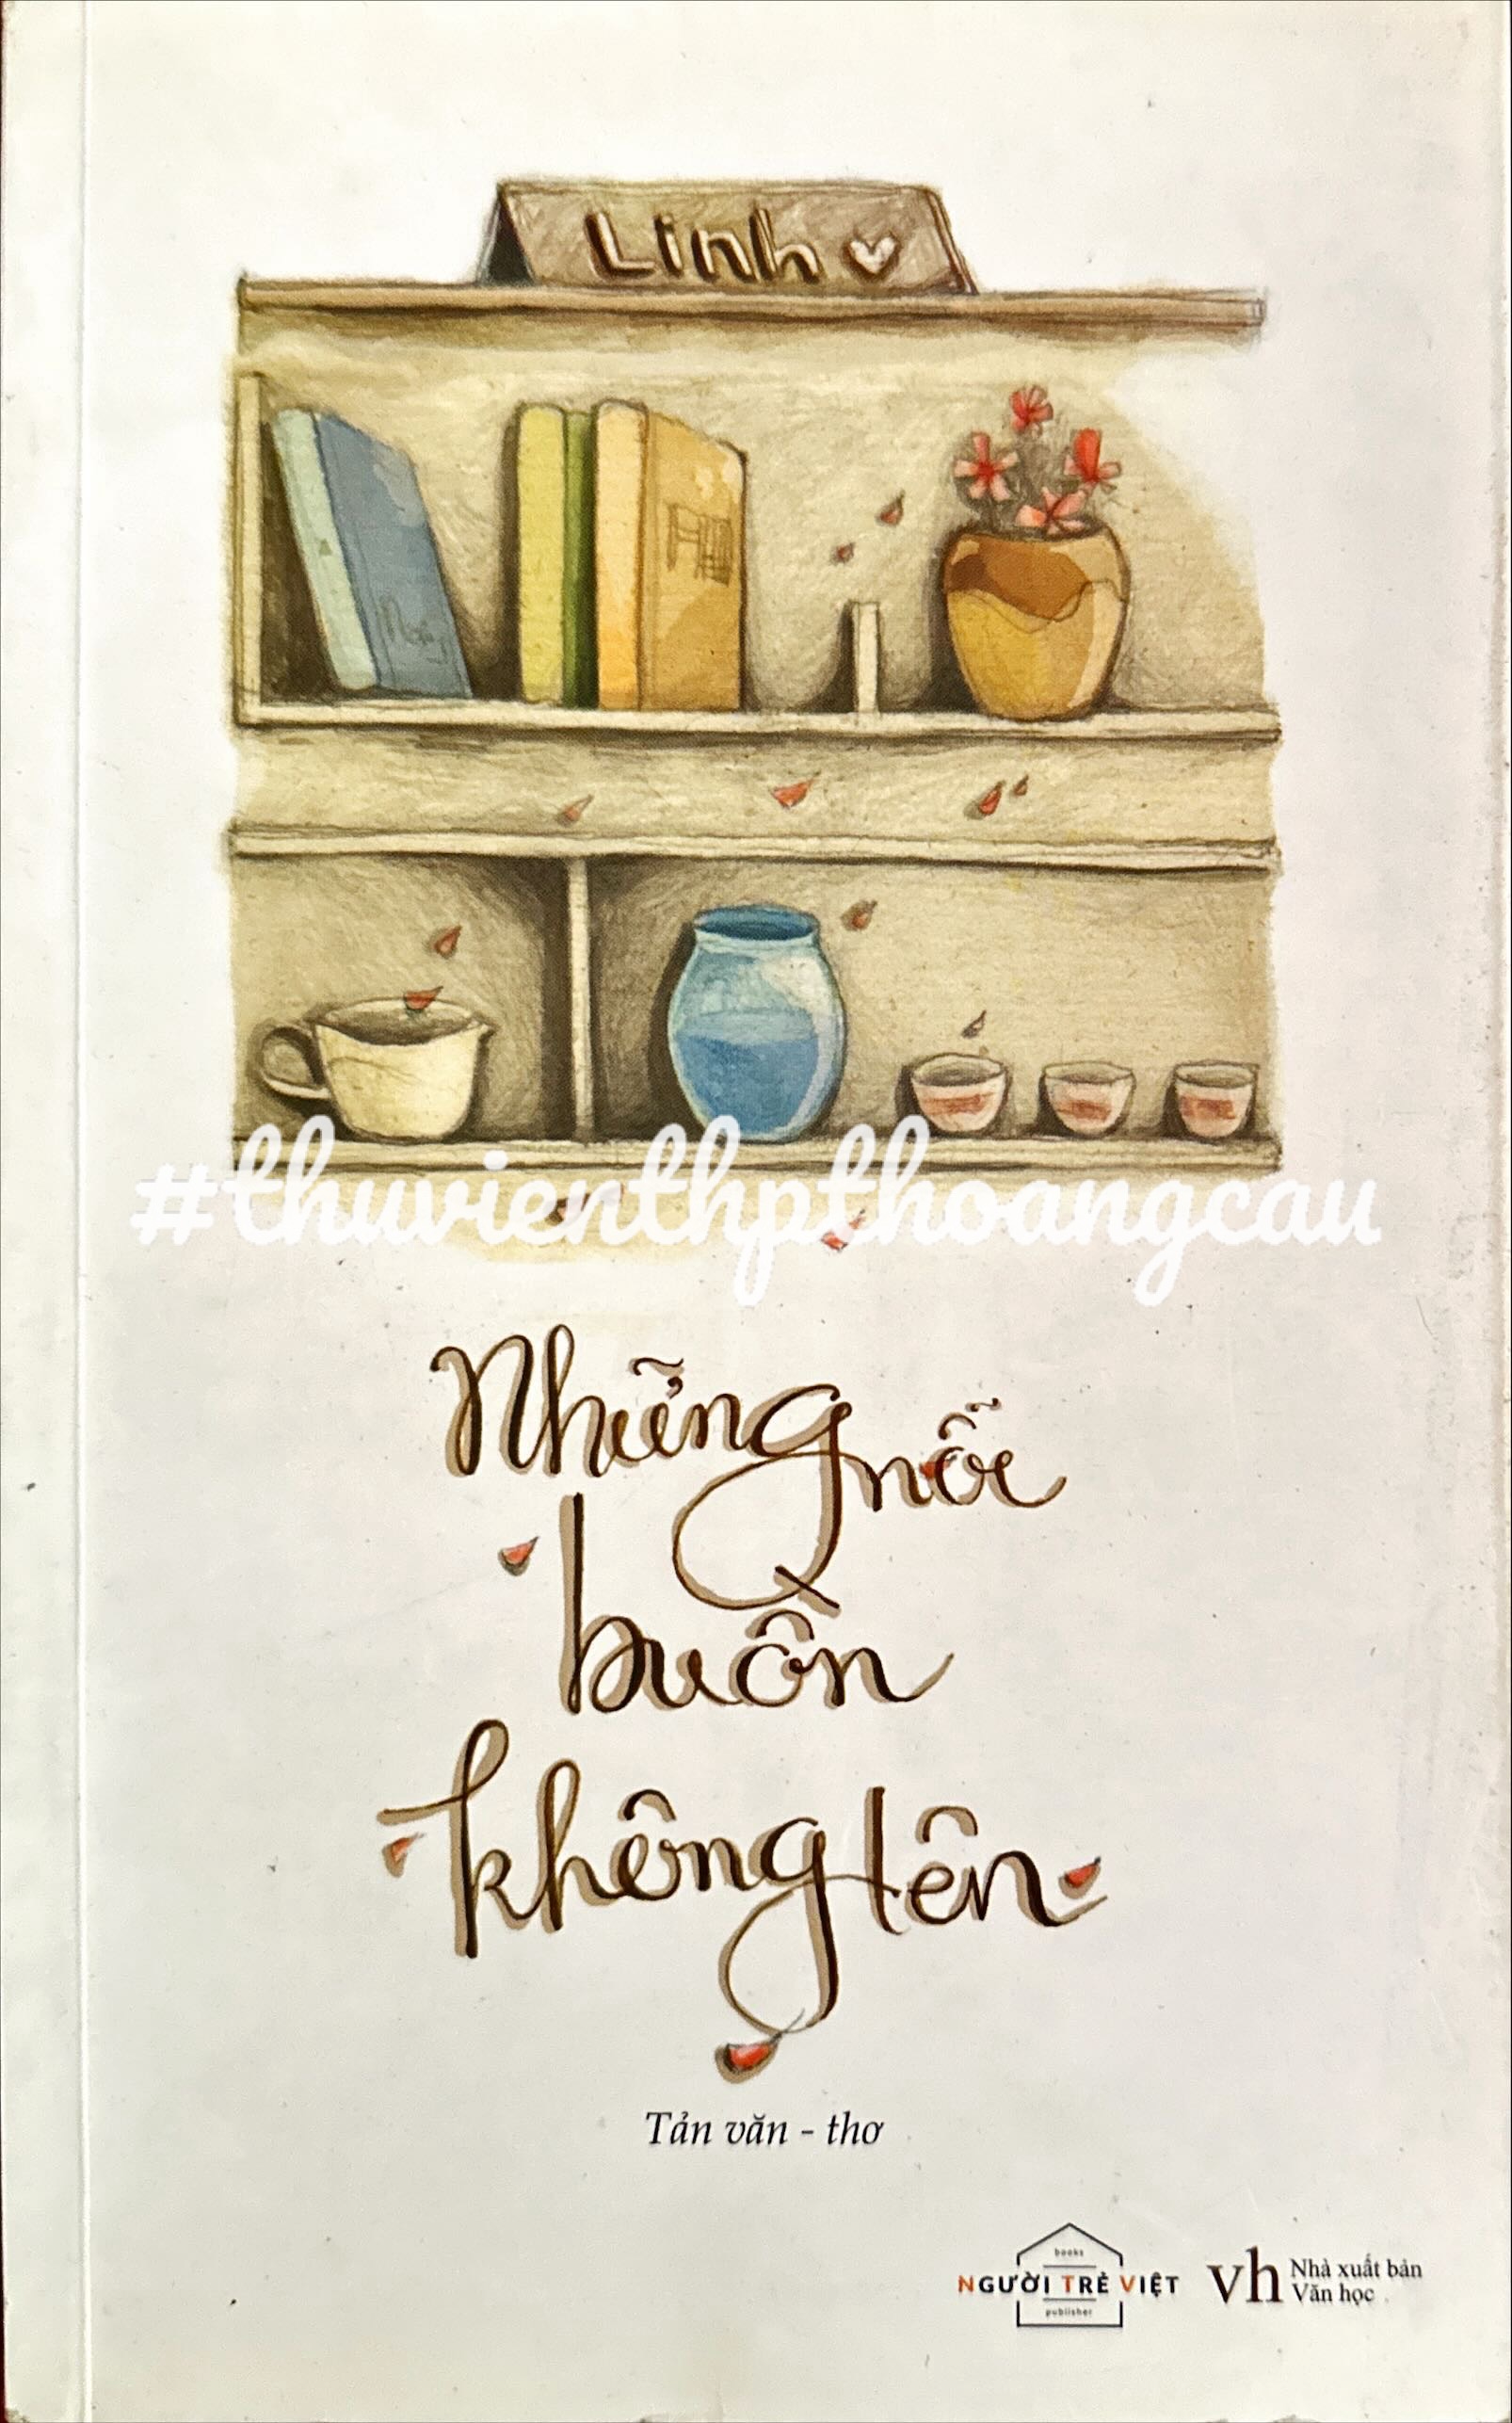 Linh
#thuvienthpthoangcau
Những nỗi
buồn
không tên
Tản văn - thơ
books
NGƯỜI TRẺ VIỆT
publisher
vh Nhà xuất bản
Văn học